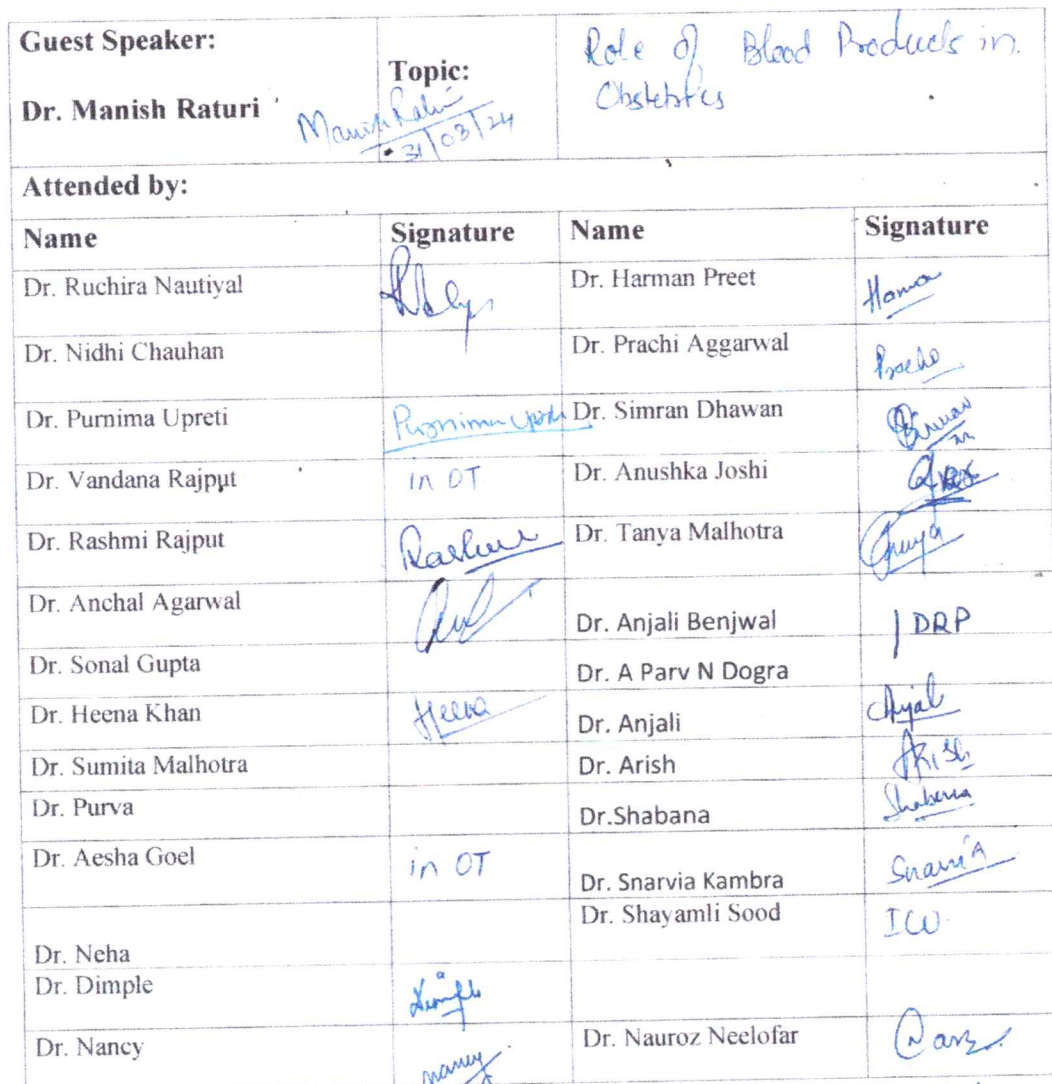 Guest Speaker:
Dr. Manish Raturi
Manish Raturi
31/03/24
Topic:
Role of Blood Products in
Obstetrics
Attended by:
Name Signature Name Signature
Dr. Ruchira Nautiyal Dr. Harman Preet
Dr. Nidhi Chauhan Dr. Prachi Aggarwal
Dr. Purnima Upreti Purnima Dr. Simran Dhawan
Dr. Vandana Rajput in OT Dr. Anushka Joshi
Dr. Rashmi Rajput Dr. Tanya Malhotra
Dr. Anchal Agarwal Dr. Anjali Benjwal DRP
Dr. Sonal Gupta Dr. A Parv N Dogra
Dr. Heena Khan Heena Dr. Anjali Anjali
Dr. Sumita Malhotra Dr. Arish Arish
Dr. Purva Dr.Shabana Shabana
Dr. Aesha Goel in OT Dr. Snarvia Kambra
Dr. Neha Dr. Shayamli Sood ICU
Dr. Dimple Dimple
Dr. Nancy nancy Dr. Nauroz Neelofar